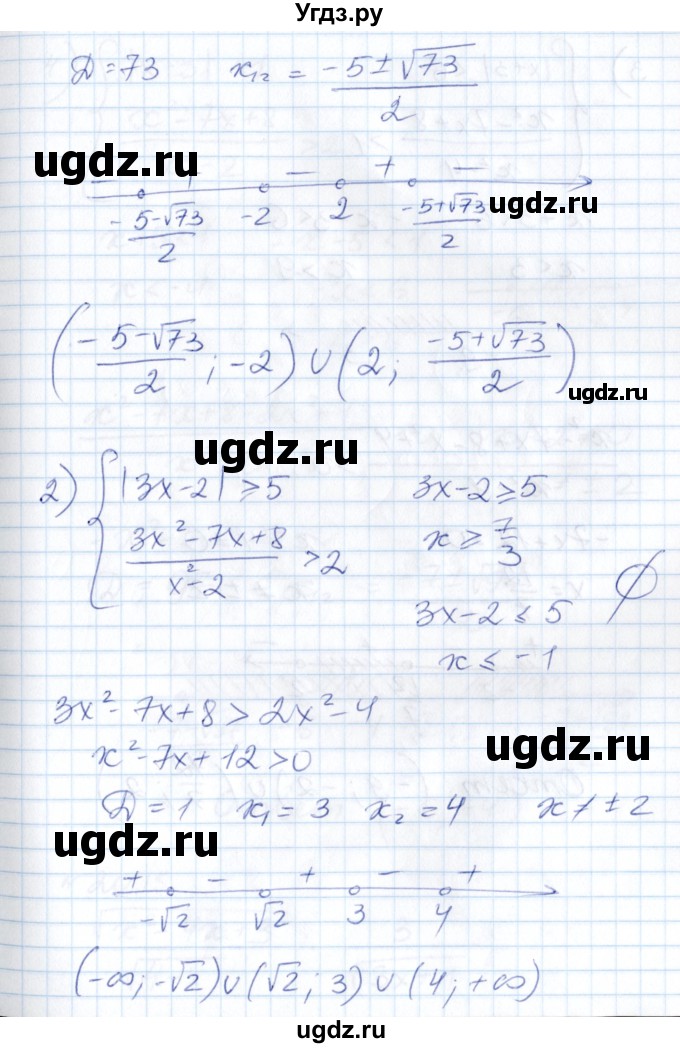 Угдз.ру
Д=73 x₁₂ = (-5±√73)/2
ugdz.ru
+ − + −
ugdz.ru
(-5-√73)/2 -2 2 (-5+√73)/2
((-5-√73)/2; -2) ∪ (2; (-5+√73)/2)
ugdz.ru
ugdz.ru
2) { |3x-2| ≥ 5 3x-2 ≥ 5
(3x²-7x+8)/(x²-2) > 2 x ≥ 7/3
∅
3x-2 ≤ 5
x ≤ -1
3x²-7x+8 > 2x²-4
x²-7x+12>0
ugdz.ru
Д=1 x₁=3 x₂=4 x ≠ ±2
ugdz.ru
+ − + − +
-√2 √2 3 4
(-∞; -√2) ∪ (√2; 3) ∪ (4; +∞)
ugdz.ru